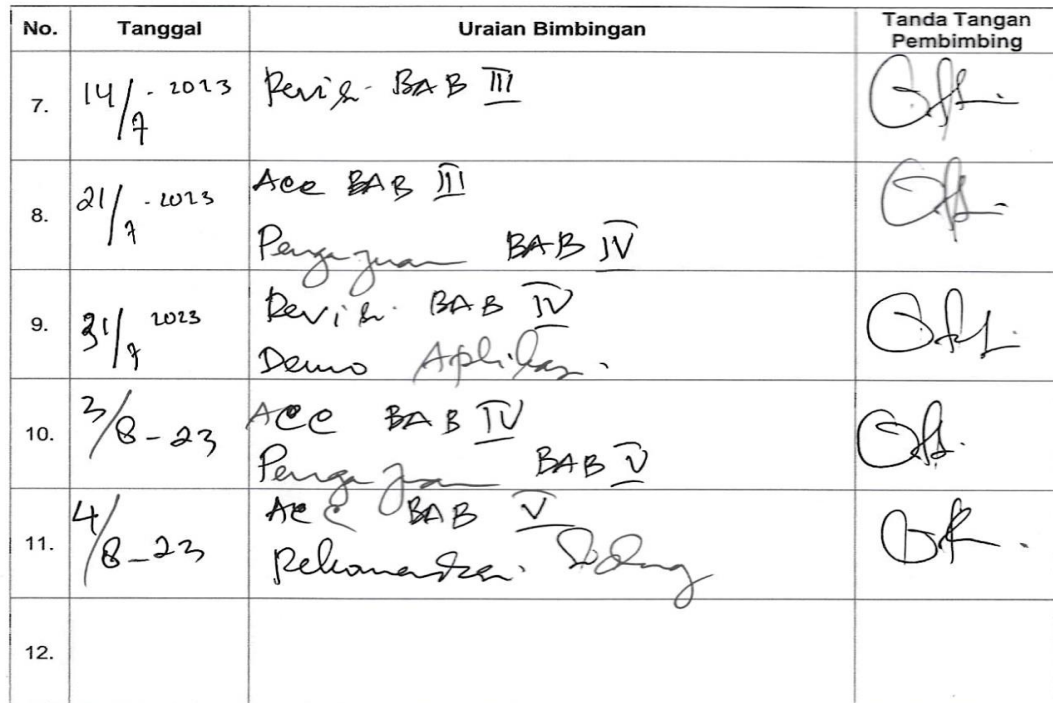 No. Tanggal Uraian Bimbingan Tanda Tangan Pembimbing
7. 14/7 - 2023 Revisi BAB III
8. 21/7 - 2023 Acc BAB III
Pengajuan BAB IV
9. 31/7 2023 Revisi BAB IV
Demo Aplikasi.
10. 3/8-23 Acc BAB IV
Pengajuan BAB V
11. 4/8-23 Acc BAB V
Rekomendasi Sidang
12.